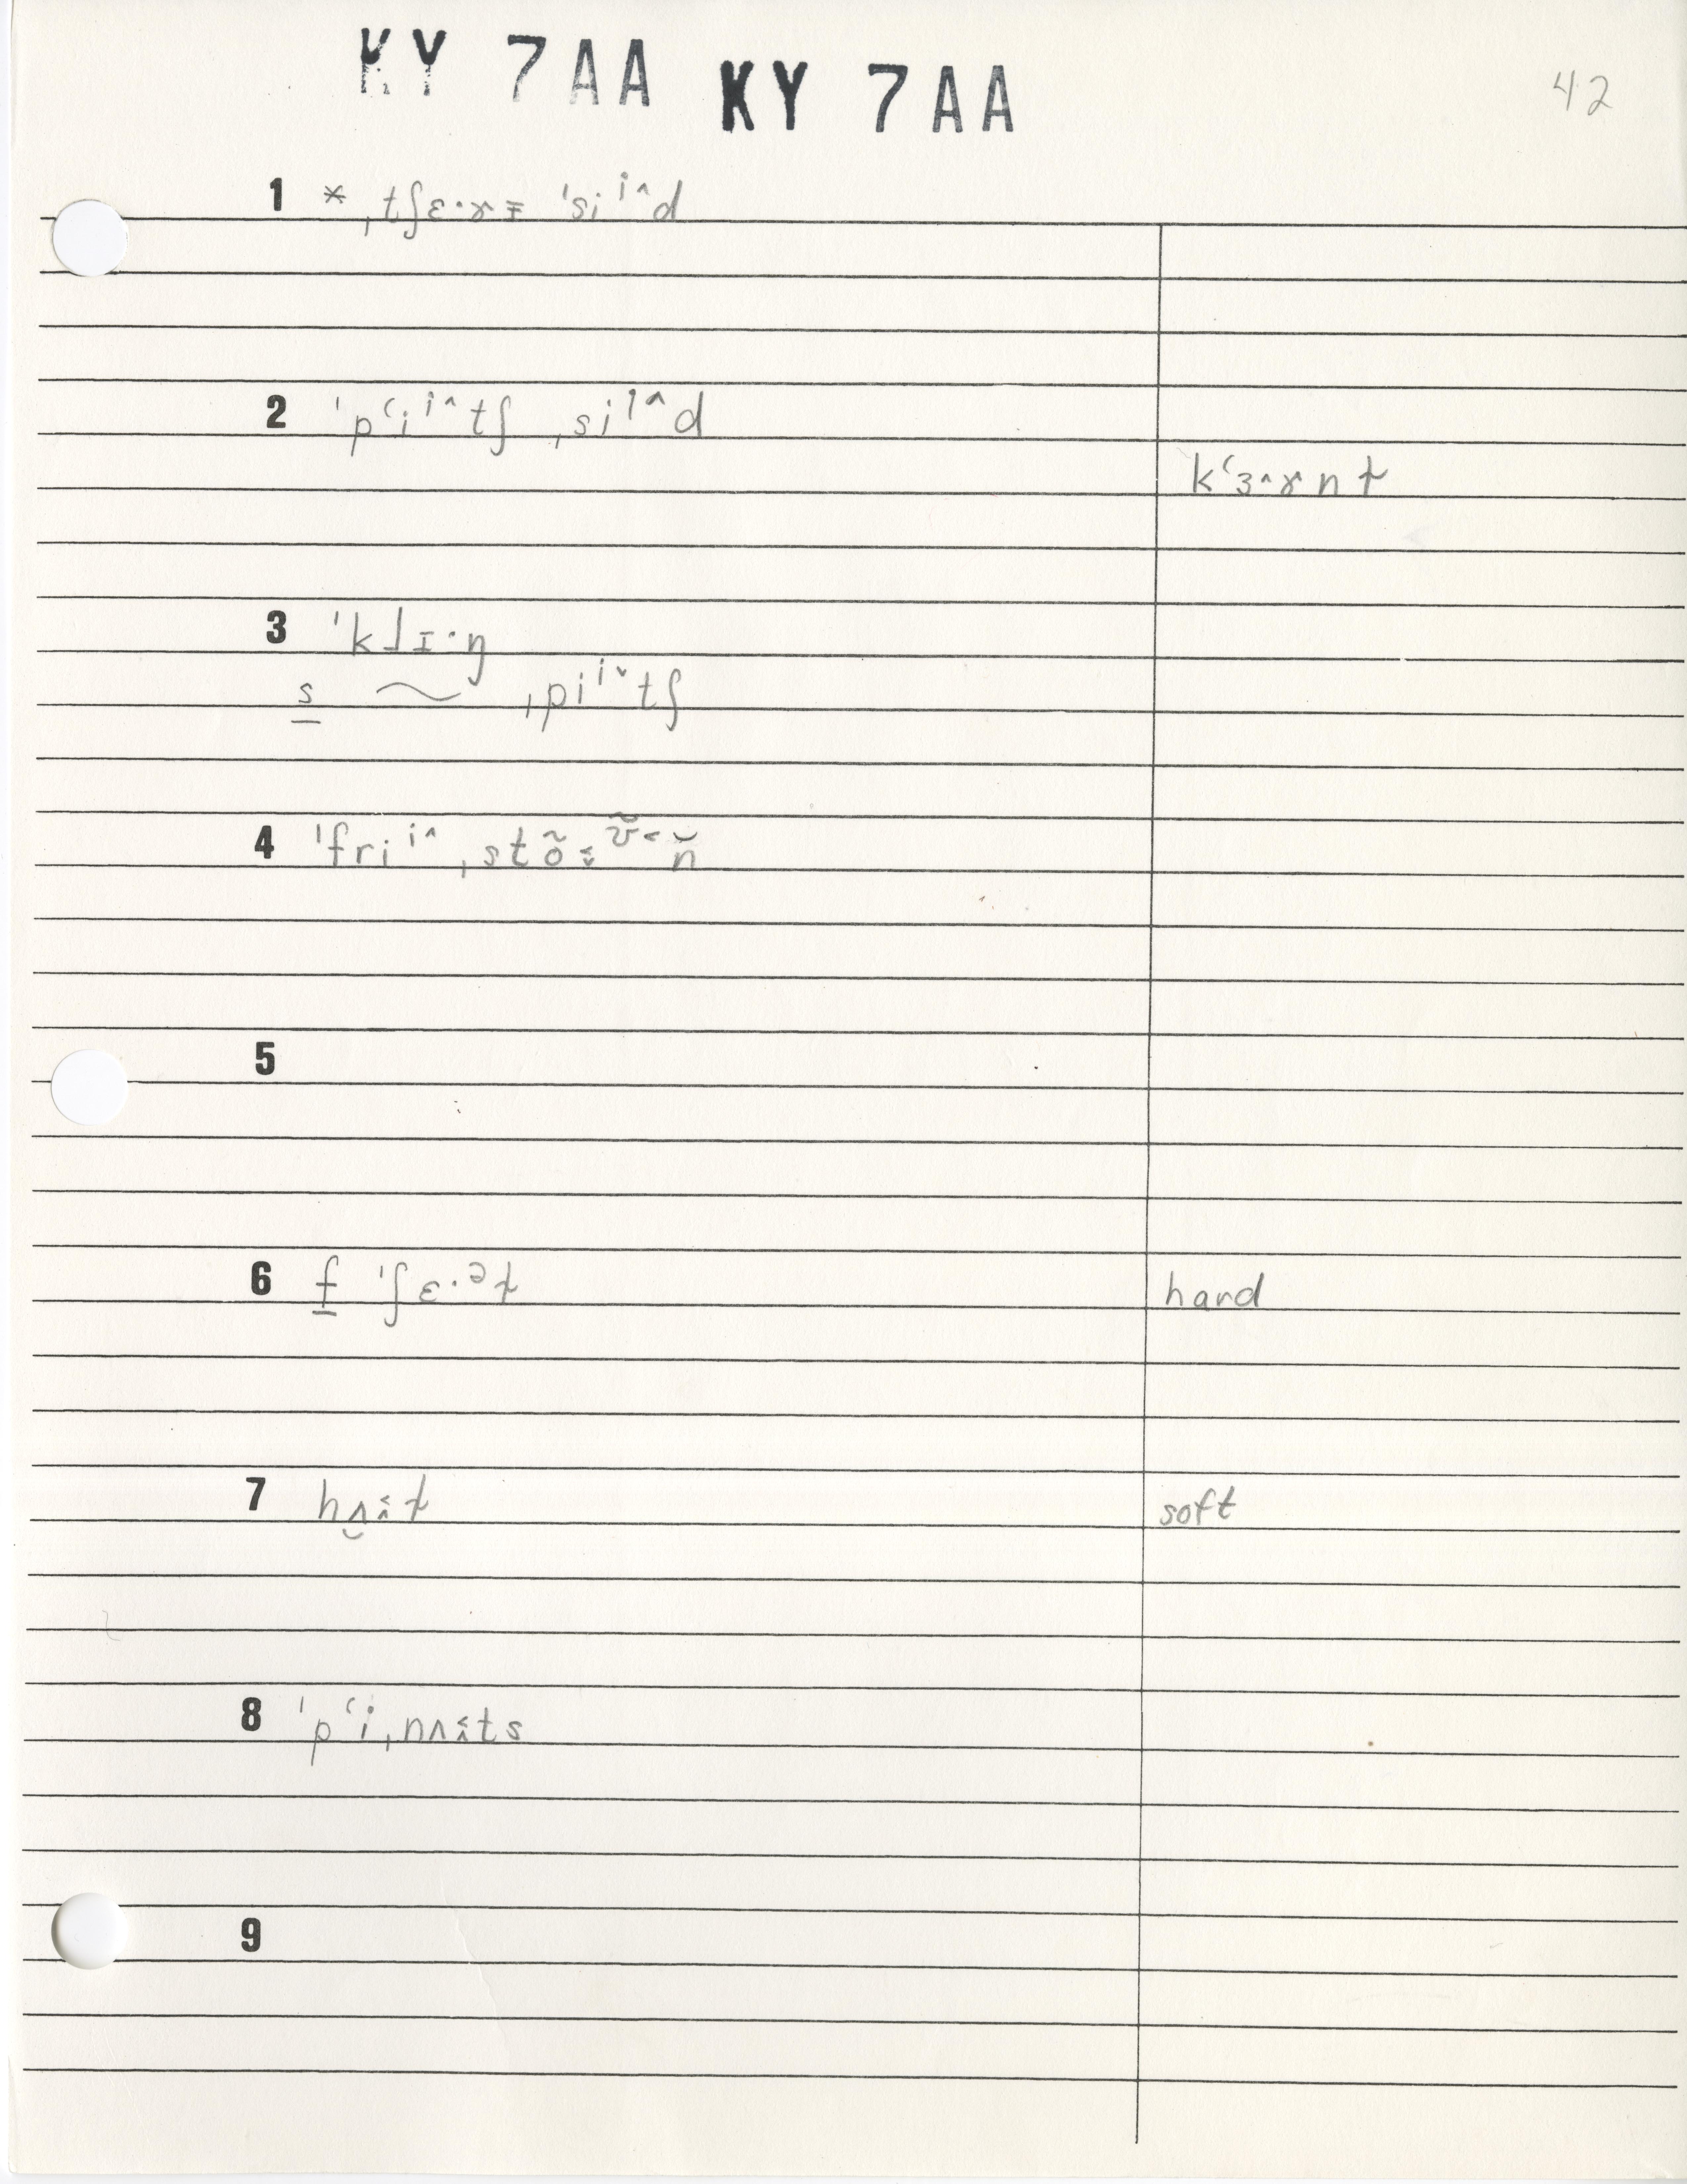 KY 7AA KY 7AA
42
1 * ˌtʃɛ·ɤɪ̵ ˈsiⁱ^d
2 ˈpʻiⁱ^tʃ ˌsiⁱ^d
kʻɜ^ɤnt
3 ˈk⅃ɪ·ŋ
s ~ ˌpiⁱˇtʃ
4 ˈfriⁱ^ ˌstõ
5
6 f ˈʃɛ·ᵊt
hard
7 hʌi̯t
soft
8 ˈpʻiˌnʌits
9